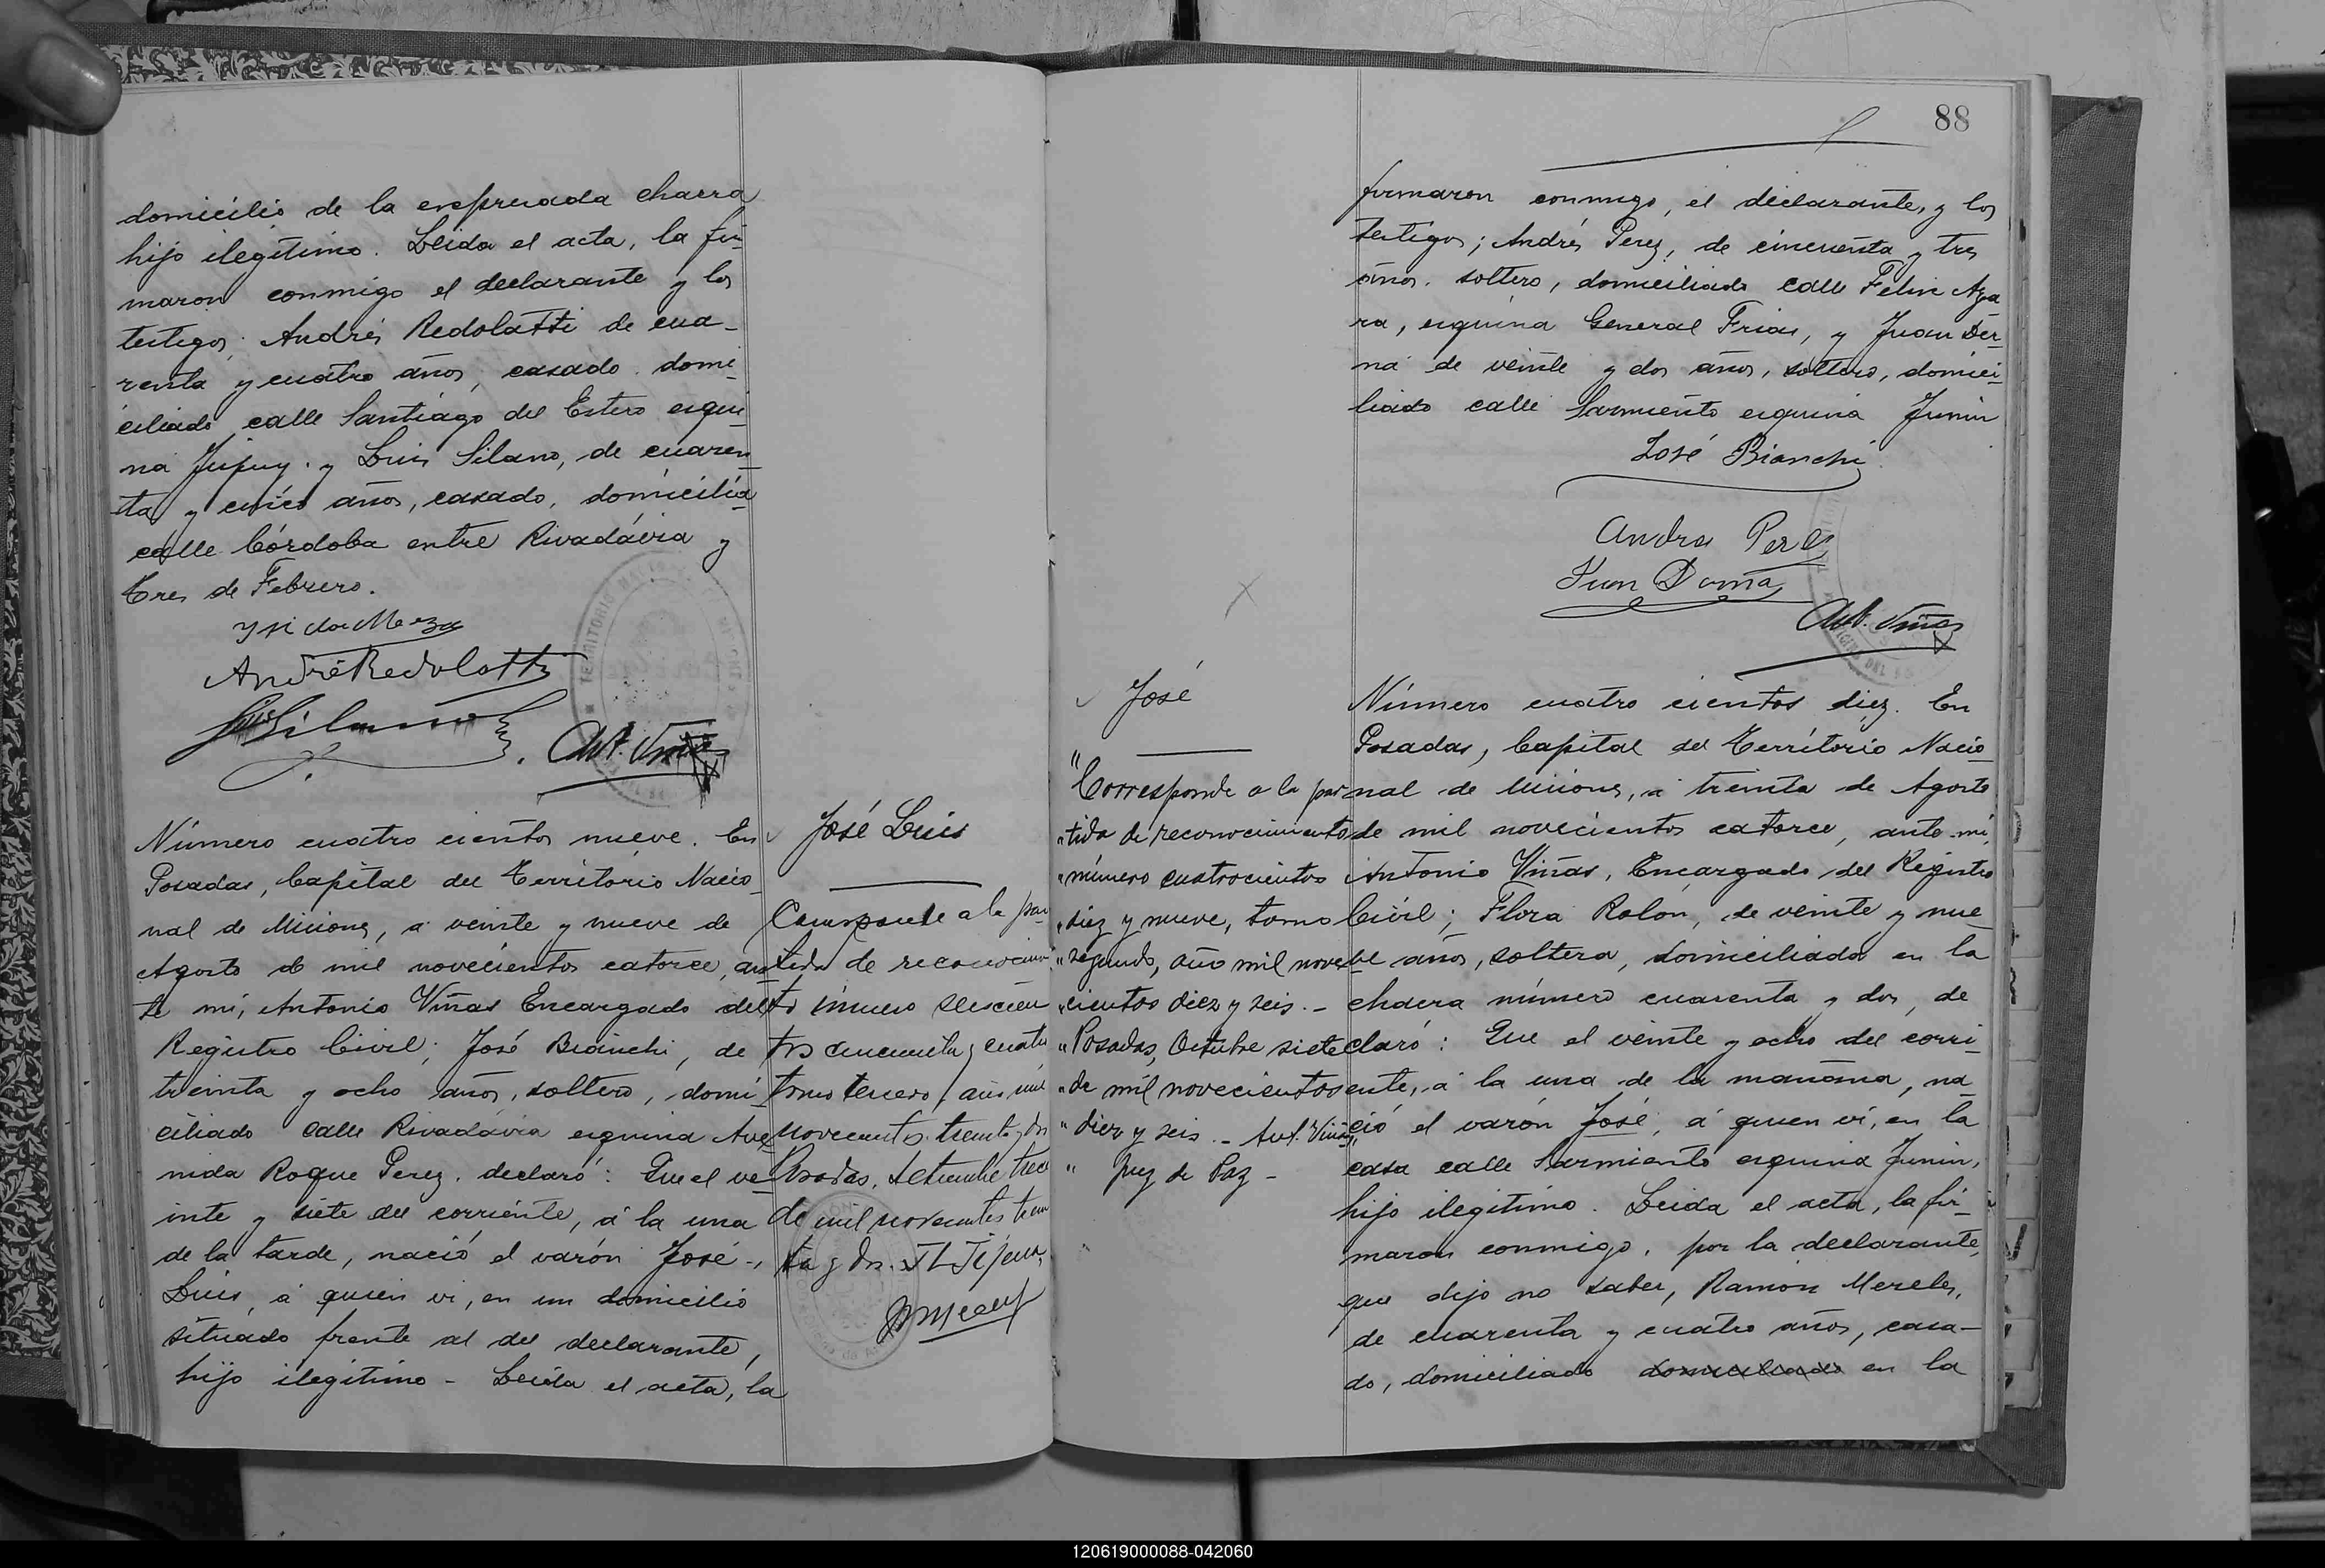 domicilio de la expresada chacra
hijo ilegítimo. Leida el acta, la fir-
maron conmigo el declarante y los
testigos; Andrés Redolatti de cua-
renta y cuatro años, casado, domi-
ciliado calle Santiago del Estero esqui-
na Jujuy y Luis Silano, de cuaren-
ta y cinco años, casado, domicilia
calle Córdoba entre Rivadávia y
Tres de Febrero.
Andrés Redolatti
Luis Silano
Ant. Viñas
Número cuatro cientos nueve. En
Posadas, Capital del Territorio Nacio-
nal de Misiones, á veinte y nueve de
Agosto de mil novecientos catorce, an-
te mí, Antonio Viñas Encargado del
Registro Civil; José Bianchi, de
treinta y ocho años, soltero, domi-
ciliado calle Rivadávia esquina Ave-
nida Roque Perez, declaró: Que el ve-
inte y siete del corriente, á la una
de la tarde, nació el varón José-
Luis, á quien vi, en un domicilio
situado frente al del declarante,
hijo ilegítimo - Leida el acta, la
José Luis
Corresponde a la par
tida de reconocimien
to número seiscien
tos cincuenta y cuatro
tomo tercero, año mil
novecientos treinta y dos
Posadas, Setiembre trece
de mil novecientos trein
ta y dos.
88
firmaron conmigo, el declarante, y los
testigos; Andrés Perez, de cincuenta y tres
años, soltero, domiciliado calle Felix Aza
ra, esquina General Frias, y Juan Der-
na de veinte y dos años, soltero, domici-
liado calle Sarmiento esquina Junin
José Bianchi
Andres Perez
Ant. Viñas
José
"Corresponde a la par
"tida de reconocimiento
"número cuatrocientos
"diez y nueve, tomo
"segundo, año mil nove
"cientos diez y seis.-
"Posadas, Octubre siete
"de mil novecientos
"diez y seis.- Ant. Viñas
" Juez de Paz -
Número cuatro cientos diez. En
Posadas, Capital del Territorio Nacio-
nal de Misiones, á treinta de Agosto
de mil novecientos catorce, ante mí,
Antonio Viñas, Encargado del Registro
Civil; Flora Rolon, de veinte y nue-
ve años, soltera, domiciliada en la
chacra número cuarenta y dos, de
claró: Que el veinte y ocho del corri-
ente, á la una de la mañana, na
ció el varón José, á quien vi, en la
casa calle Sarmiento esquina Junin,
hijo ilegitimo. Leida el acta, la fir-
maron conmigo, por la declarante,
que dijo no saber, Ramón Mereles,
de cuarenta y cuatro años, casa-
do, domiciliado domiciliado en la
120619000088-042060